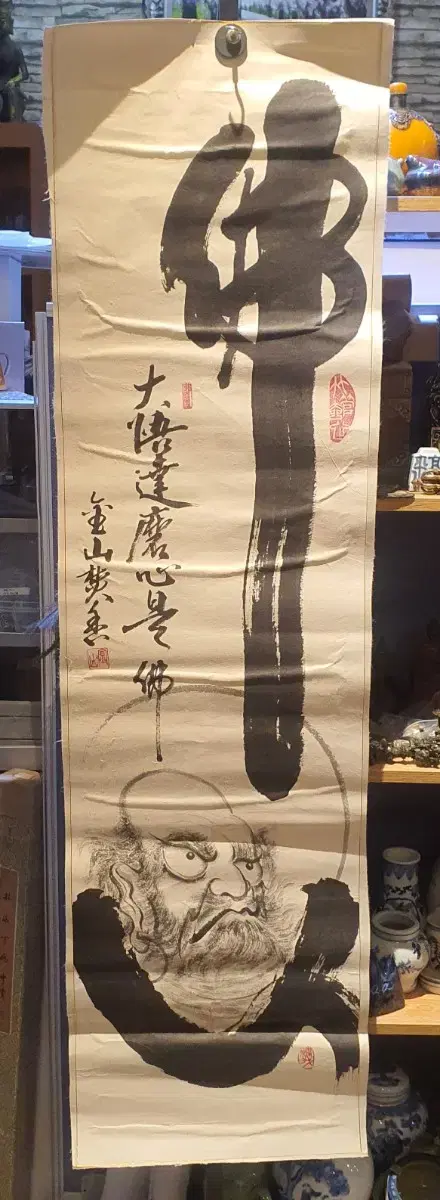 佛
大悟達磨心是佛
金山焚香